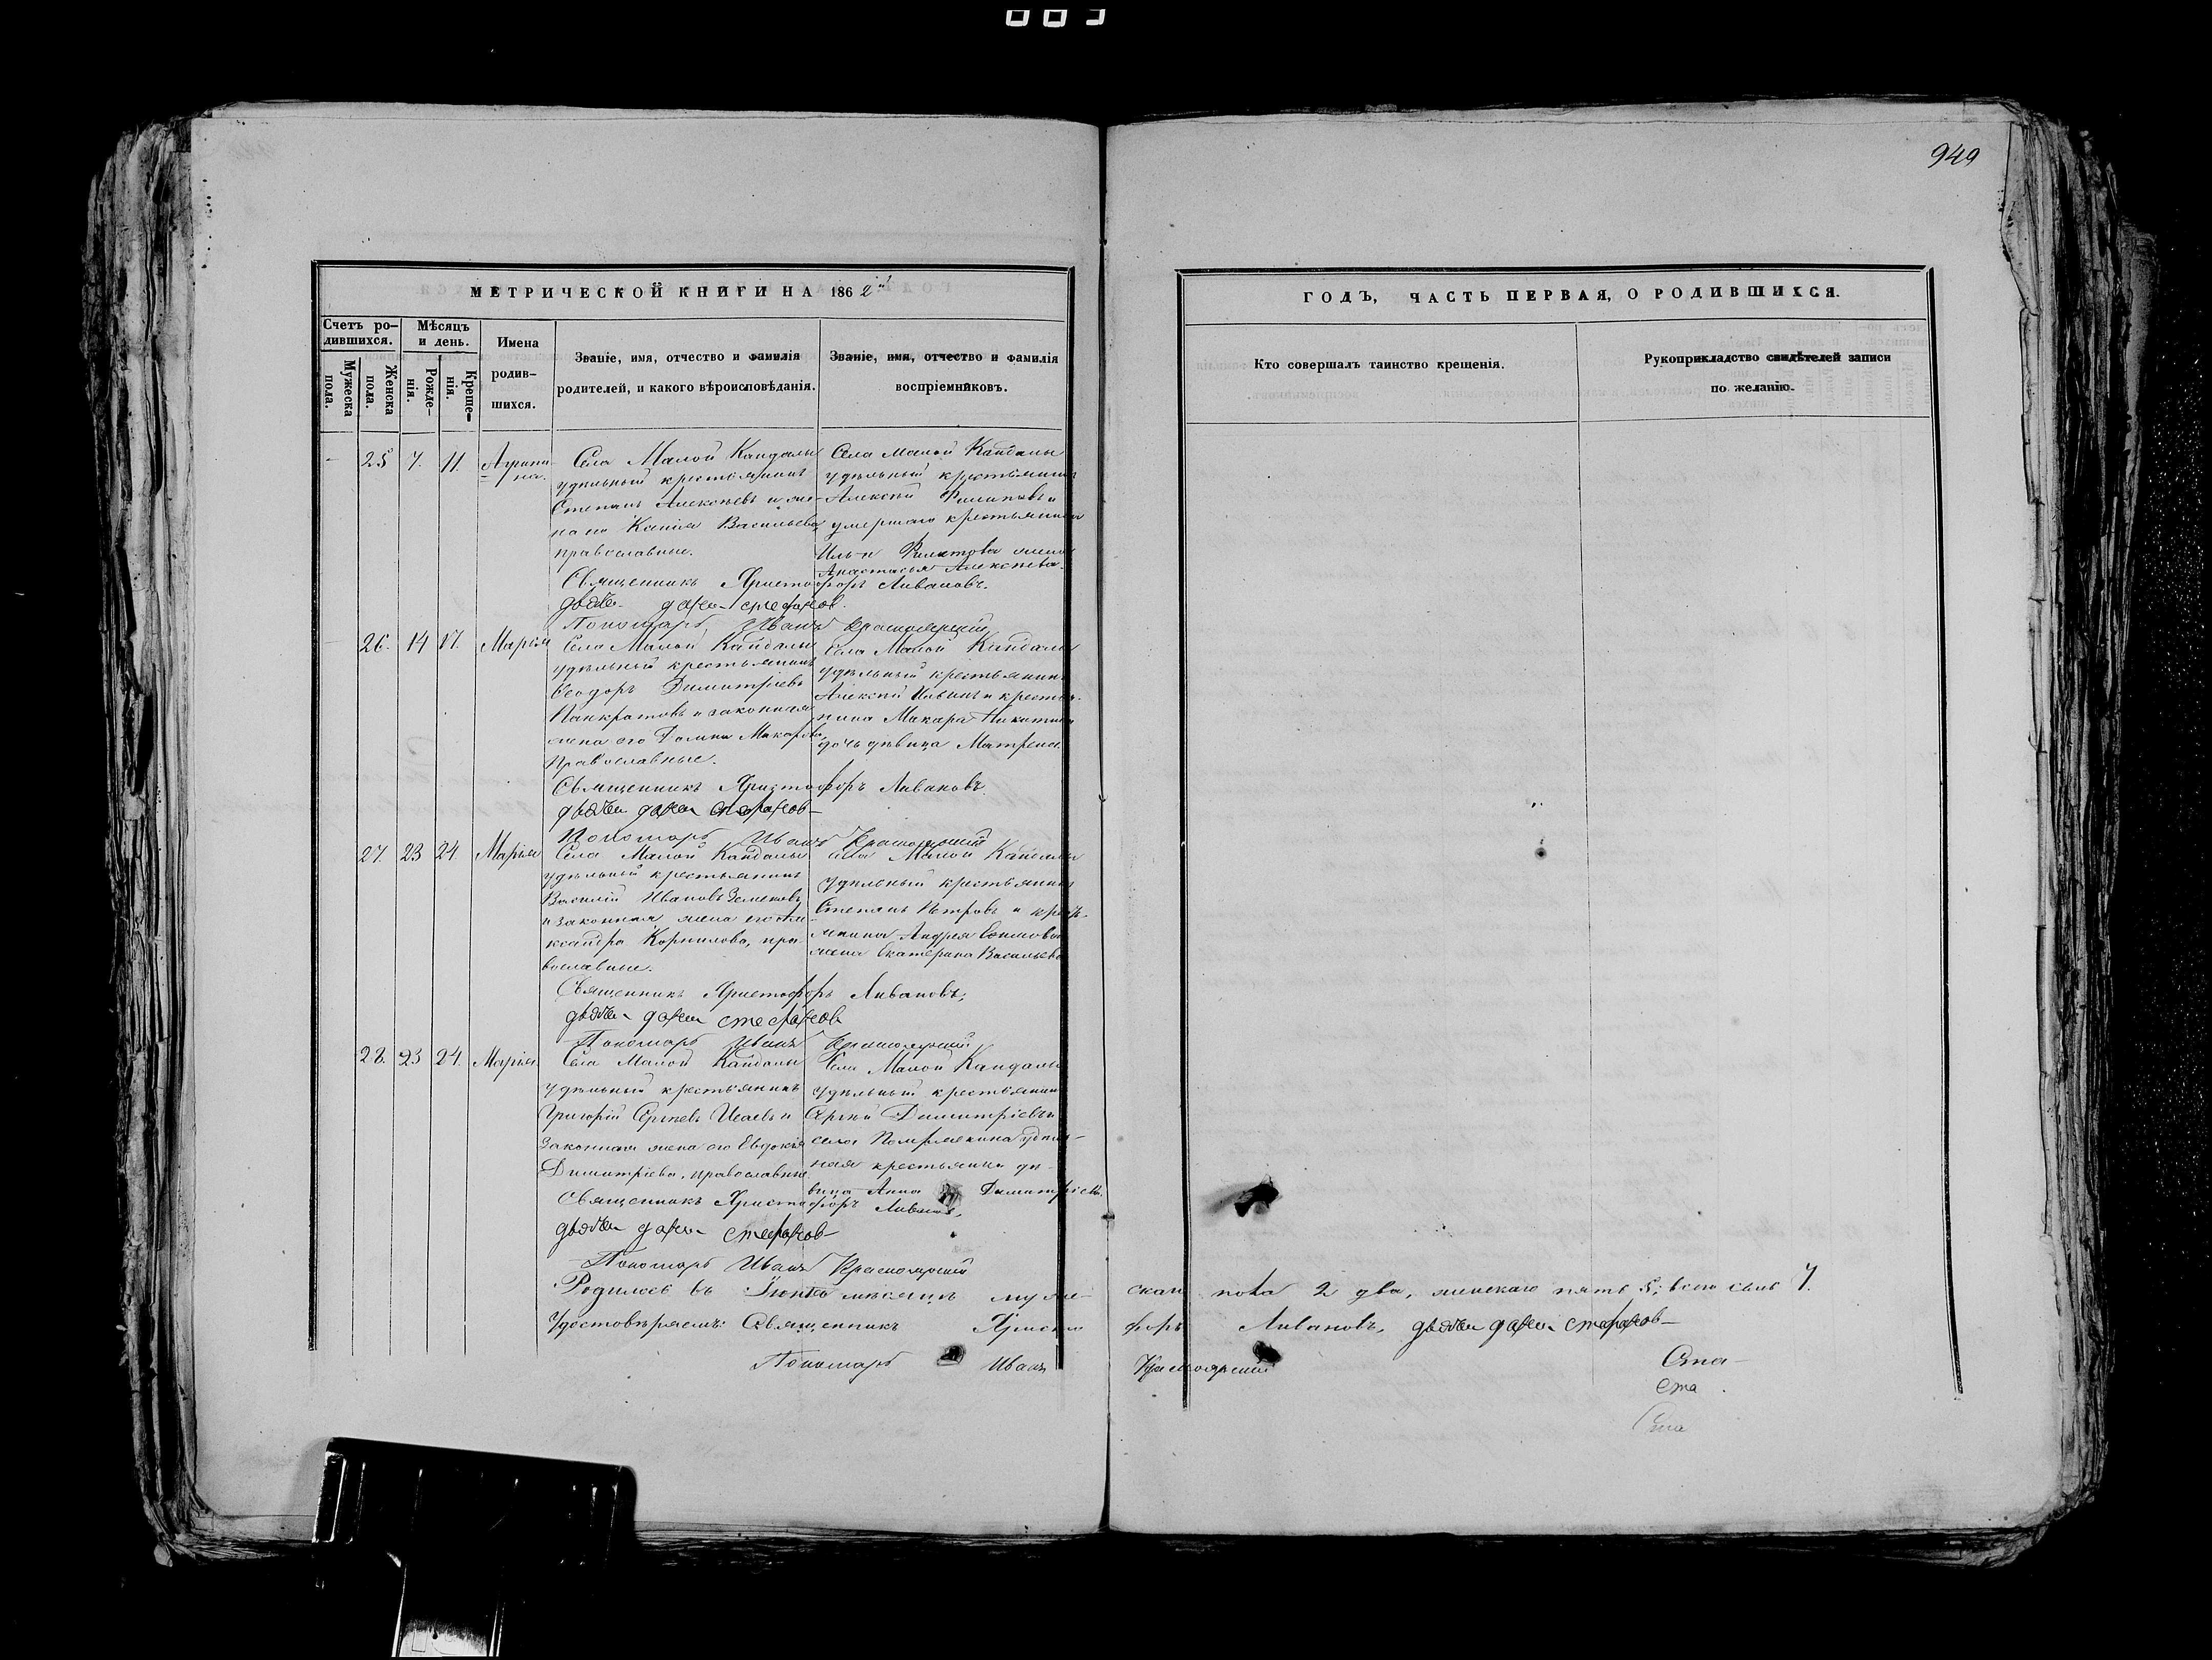 949
МЕТРИЧЕСКОЙ КНИГИ НА 1862й
ГОДЪ, ЧАСТЬ ПЕРВАЯ, О РОДИВШИХСЯ.
Счетъ ро-
дившихся.
Мѣсяцъ
и день.
Мужеска
пола.
Женска
пола.
Рожде-
нія.
Креще-
нія.
Имена
родив-
шихся.
Званіе, имя, отчество и фамилія
родителей, и какого вѣроисповѣданія.
Званіе, имя, отчество и фамилія
воспріемниковъ.
Кто совершалъ таинство крещенія.
Рукоприкладство свидѣтелей записи
по желанію.
25 7. 11. Агрипи-
на.
Села Малой Кандалы
удѣльный крестьянинъ
Степанъ Алексѣевъ и же-
на его Ксенія Васильева
православные.
Села Малой Кандалы
удѣльный крестьянинъ
Алексѣй Филиповъ и
умершаго крестьянина
Ильи Филатова жена
Анастасья Алексѣева.
Священникъ Христофоръ Ливановъ.
Пономарь Иванъ Красноярскій
26. 14 17. Марія
Села Малой Кандалы
удѣльный крестьянинъ
Ѳеодоръ Димитріевъ
Панкратовъ и законная
жена его Домна Макарова,
православные.
Села Малой Кандалы
удѣльный крестьянинъ
Алексѣй Ильинъ и кресть-
янина Макара Никитина
дочь дѣвица Матрена.
Священникъ Христофоръ Ливановъ.
Пономарь Иванъ Красноярскій
27. 23 24 Марія
Села Малой Кандалы
удѣльный крестьянинъ
Василій Ивановъ
и законная жена его Але-
ксандра Корнилова, пра-
вославные.
села Малой Кандалы
удѣльный крестьянинъ
Степанъ Петровъ и кресть-
янина Андрея
жена Екатерина Васильева
Священникъ Христофоръ Ливановъ,
Пономарь Иванъ Красноярскій
28. 23 24. Марія
Села Малой Кандалы
удѣльный крестьянинъ
Григорій Сергѣевъ Исаевъ и
законная жена его Евдокія
Димитріева, православные.
Села Малой Кандалы
удѣльный крестьянинъ
Сергѣй Димитріевъ и
села удѣль-
ная крестьянка дѣ-
вица Анна Димитріева.
Священникъ Христофоръ Ливановъ,
Пономарь Иванъ Красноярскій
Родилось въ мѣсяцѣ муже- скаго пола 2 два, женскаго пять 5; всего семь 7.
Удостовѣряемъ: Священникъ Христо форъ Ливановъ,
Пономарь Иванъ Красноярскій
Ста
ста
Ста